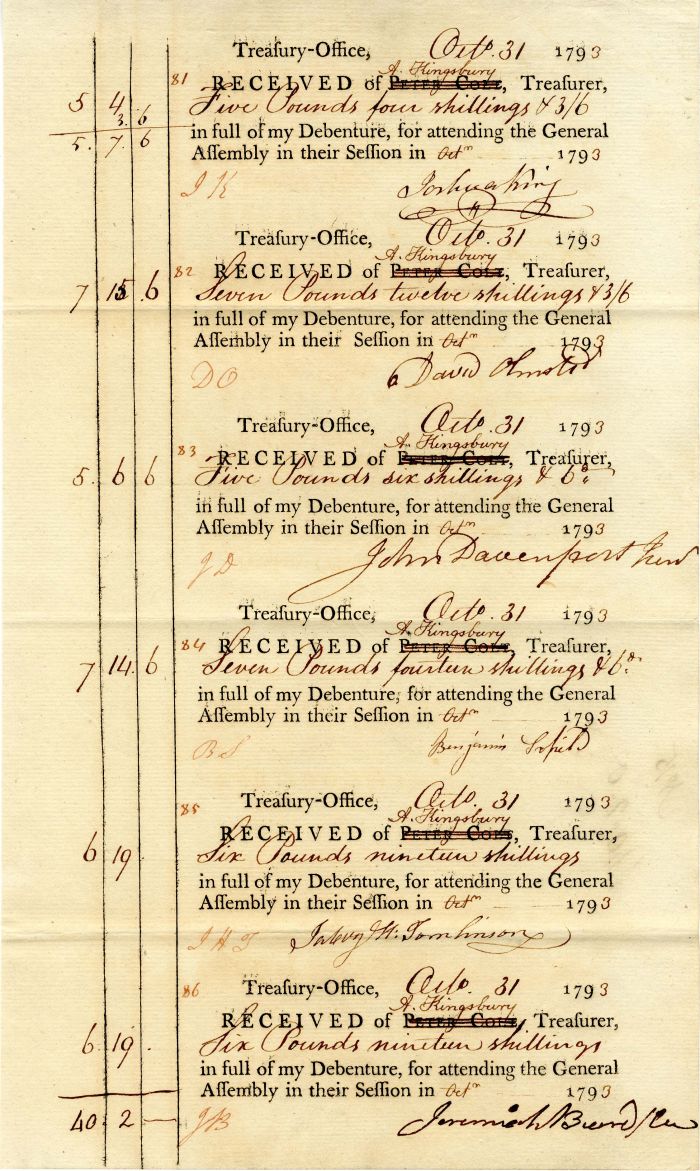 Treaſury-Office, Octo. 31 1793
A. Kingsbury
81 RECEIVED of PETER COLT, Treaſurer,
5 4 Five Pounds four shillings & 3/6
3. 6
in full of my Debenture, for attending the General
5. 7. 6
Aſſembly in their Seſſion in Octr 1793
J K Joshua King
Treaſury-Office, Octo. 31 1793
A. Kingsbury
82 RECEIVED of PETER COLT, Treaſurer,
7 15. 6 Seven Pounds twelve shillings & 3/6
in full of my Debenture, for attending the General
Aſſembly in their Seſſion in Octr 1793
D O David Olmsted
Treaſury-Office, Octo. 31 1793
A. Kingsbury
83 RECEIVED of PETER COLT, Treaſurer,
5. 6 6 Five Pounds six shillings & 6d
in full of my Debenture, for attending the General
Aſſembly in their Seſſion in Octr 1793
J D John Davenport Junr
Treaſury-Office, Octo. 31 1793
A. Kingsbury
84 RECEIVED of PETER COLT, Treaſurer,
7 14. 6 Seven Pounds fourteen shillings & 6d
in full of my Debenture, for attending the General
Aſſembly in their Seſſion in Octr 1793
B S Benjamin Scofield
Treaſury-Office, Octo. 31 1793
A. Kingsbury
85 RECEIVED of PETER COLT, Treaſurer,
6 19 Six Pounds nineteen shillings
in full of my Debenture, for attending the General
Aſſembly in their Seſſion in Octr 1793
J H T Jabez H. Tomlinson
86 Treaſury-Office, Octo. 31 1793
A. Kingsbury
RECEIVED of PETER COLT, Treaſurer,
6. 19. Six Pounds nineteen shillings
in full of my Debenture, for attending the General
Aſſembly in their Seſſion in Octr 1793
40. 2 — J B Jeremiah Beardslee